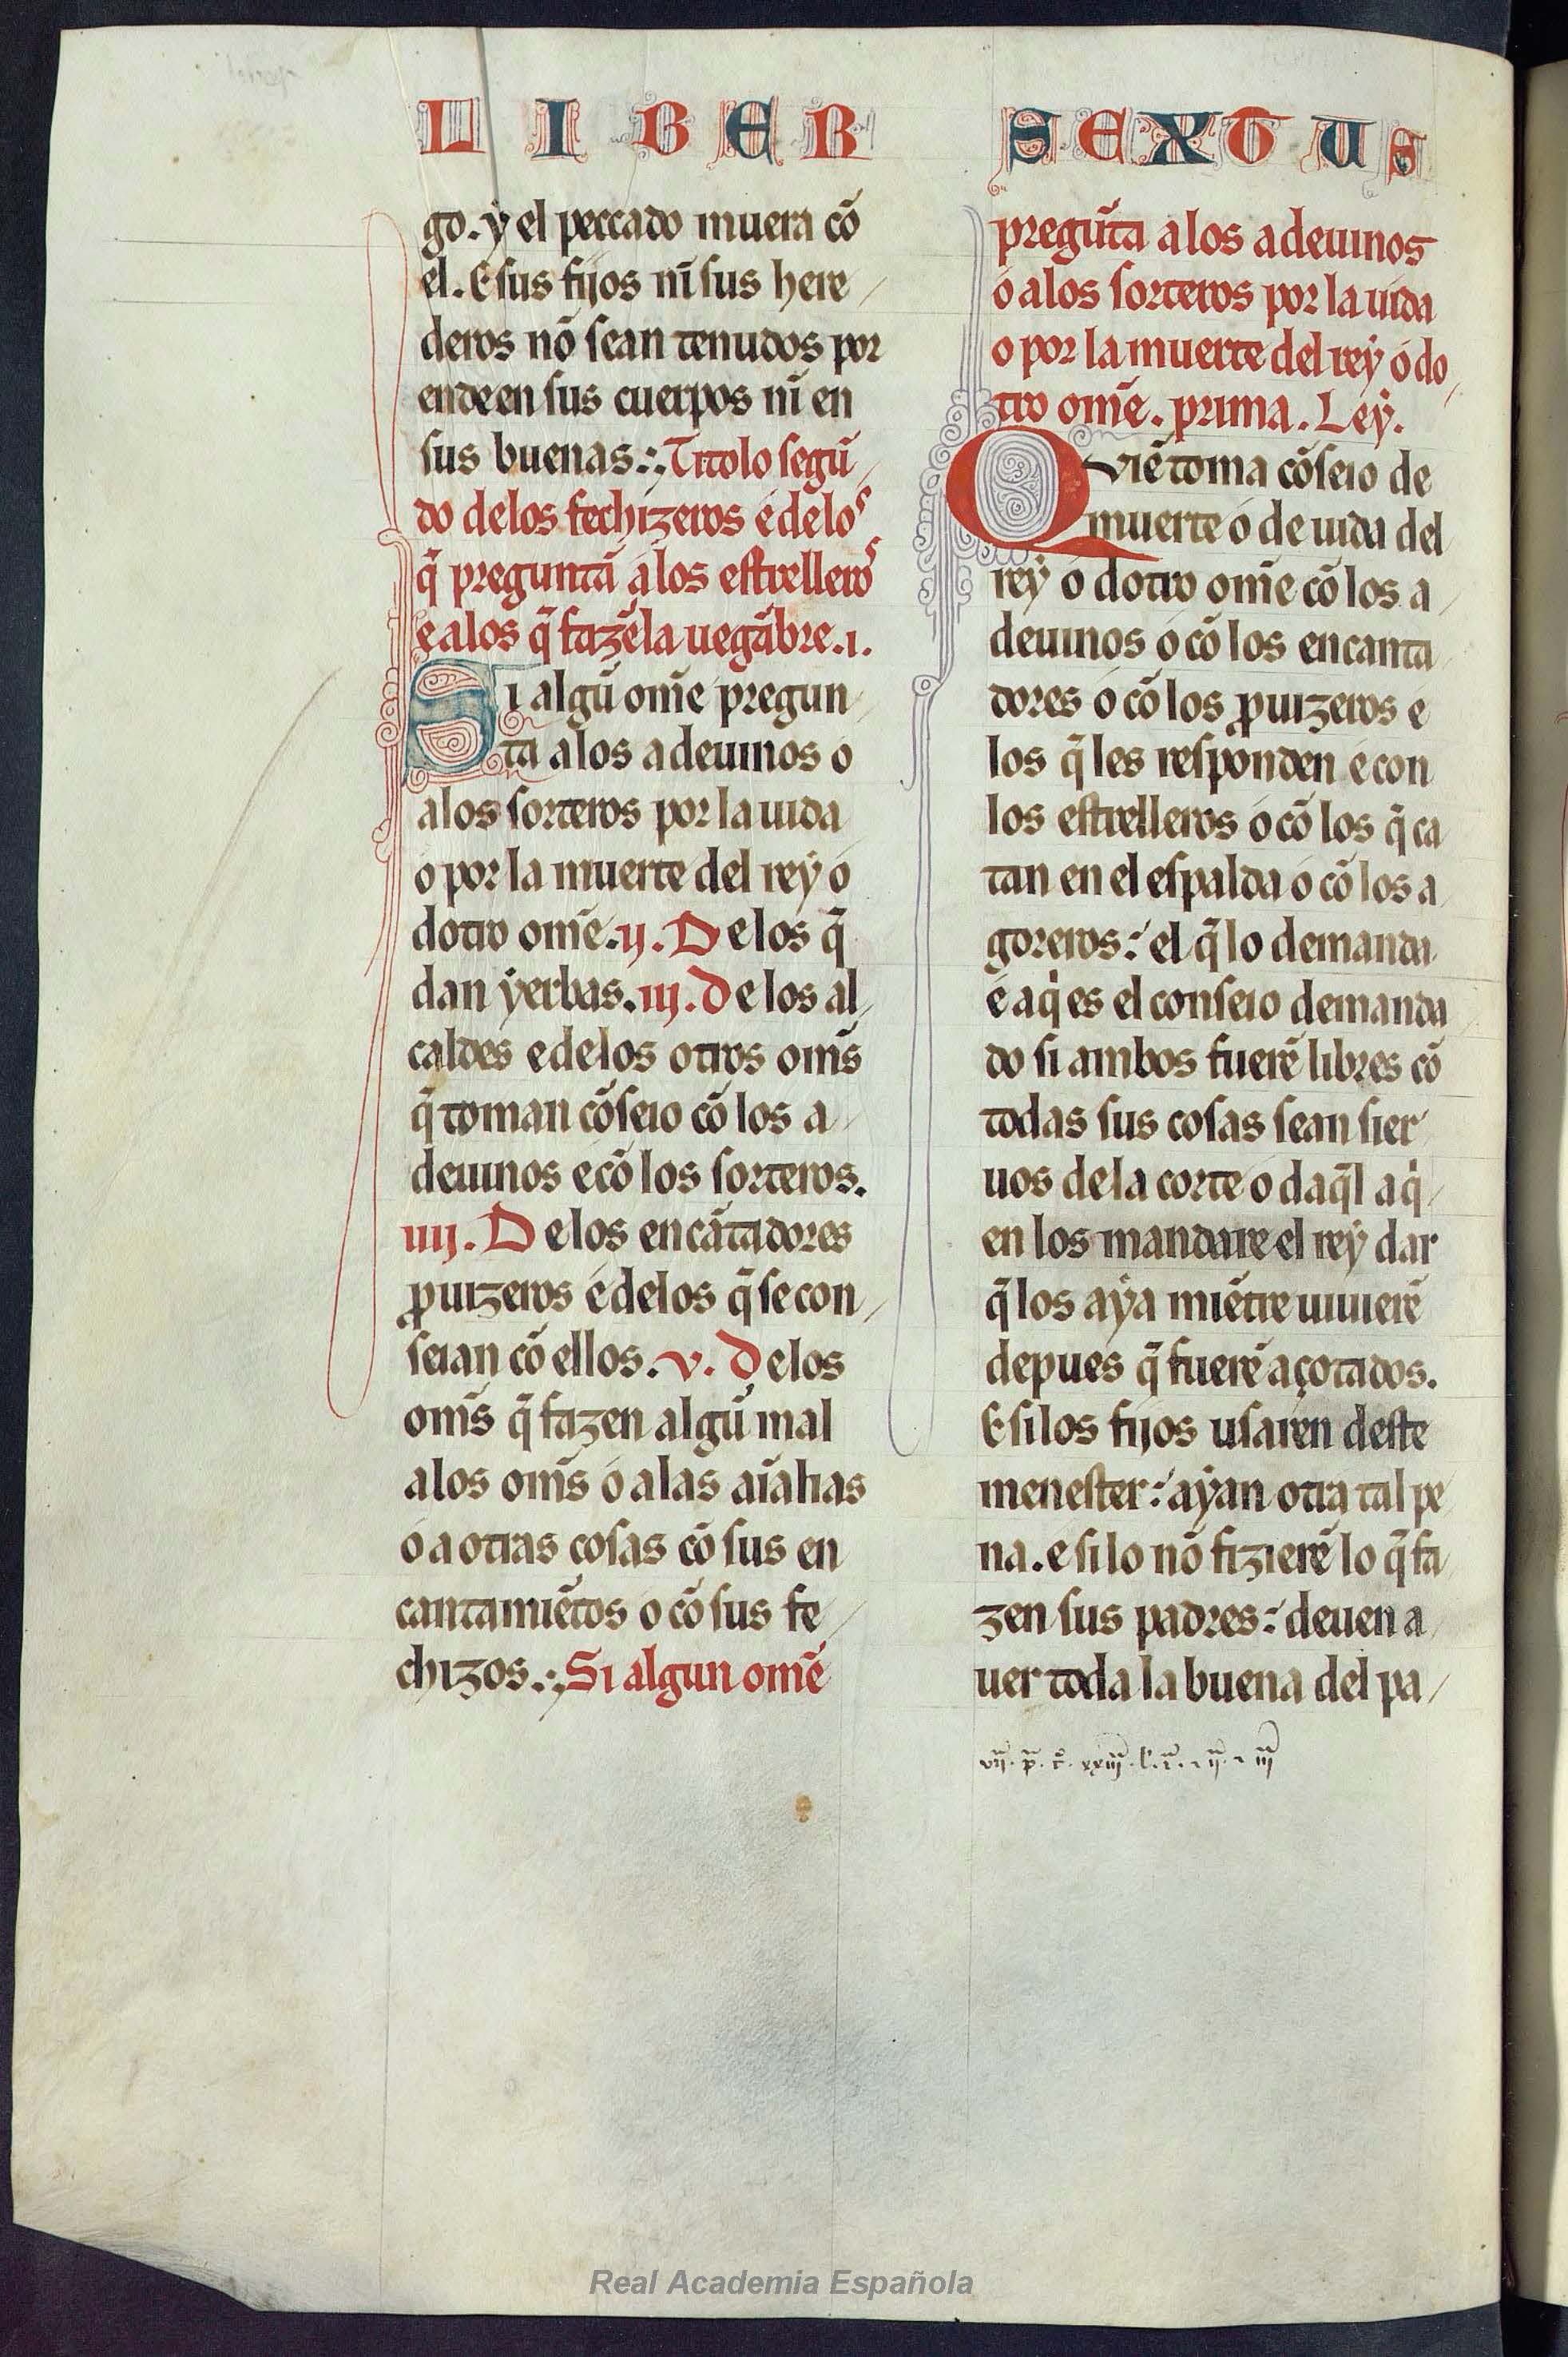 LIBER
go. y el peccado muera cõ
el. E sus fijos nĩ sus here
deros nõ sean tenudos por
ende en sus cuerpos nĩ en
sus buenas. Titolo segũ
do delos fechizeros e delos
q̃ preguntã a los estrelleros
e alos q̃ fazẽ la uegãbre. i.
Si algũ om̃e pregun
ta alos adeuinos o
alos sorteros por la uida
o por la muerte del rey o
dotro om̃e. ij. Delos q̃
dan yerbas. iij. Delos al
caldes e delos otros om̃s
q̃ toman cõseio cõ los a
deuinos e cõ los sorteros.
iiij. Delos encãtadores
ꝓuizeros e delos q̃ se con
seian cõ ellos. v. Delos
om̃s q̃ fazen algũ mal
alos om̃s o alas aĩalias
o a otras cosas cõ sus en
cantamiẽtos o cõ sus fe
chizos. Si algun om̃e
SEXTUS
pregũta alos adeuinos
o alos sorteros por la uida
o por la muerte del rey o do
tro om̃e. prima. Ley.
Quiẽ toma cõseio de
muerte o de uida del
rey o dotro om̃e cõ los a
deuinos o cõ los encanta
dores o cõ los ꝓuizeros e
los q̃ les responden e con
los estrelleros o cõ los q̃ ca
tan en el espalda o cõ los a
goreros: el q̃ lo demanda
e a qi es el conseio demanda
do si ambos fuerẽ libres cõ
todas sus cosas sean sier
uos dela corte o daq̃l a qi
en los mandare el rey dar
q̃ los aya miẽtre uiuierẽ
depues q̃ fuerẽ açotados.
E si los fijos usaren deste
menester: ayan otra tal pe
na. e si lo nõ fizierẽ lo q̃ fa
zen sus padres: deuen a
uer toda la buena del pa
Real Academia Española